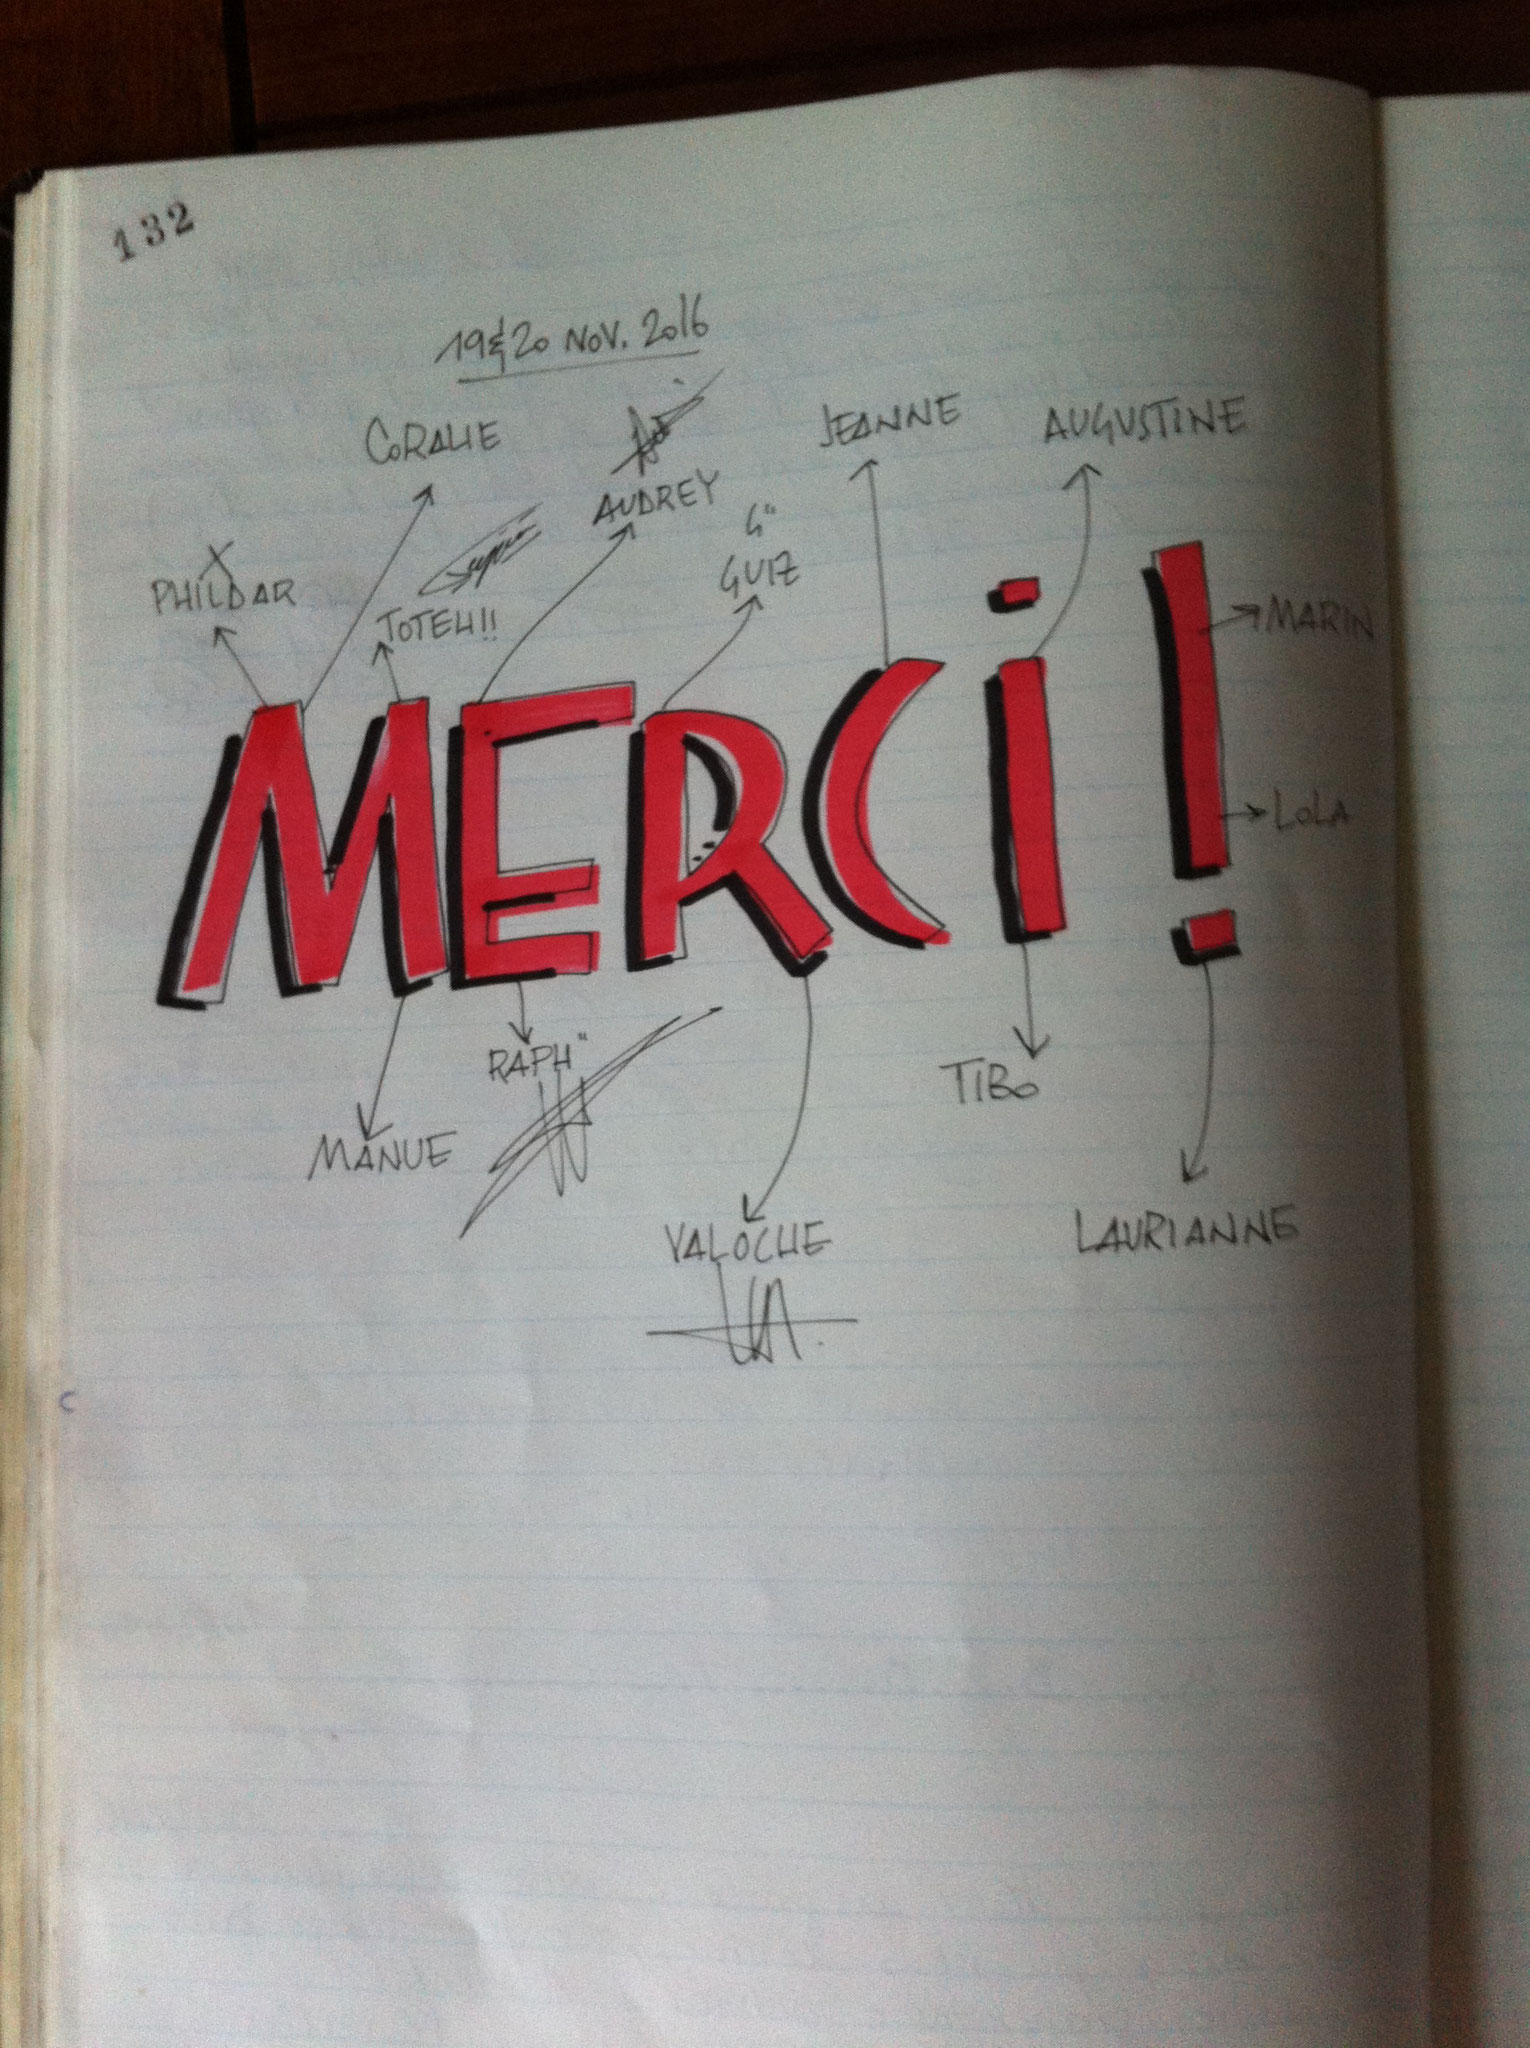 132
19 & 20 NOV. 2016
CORALIE
JEANNE
AUGUSTINE
AUDREY
G"
GUIZ
X
PHILDAR
TOTEH!!
MARIN
MERCi!
LOLA
RAPH"
TIBO
MANUE
VALOCHE
LAURIANNE